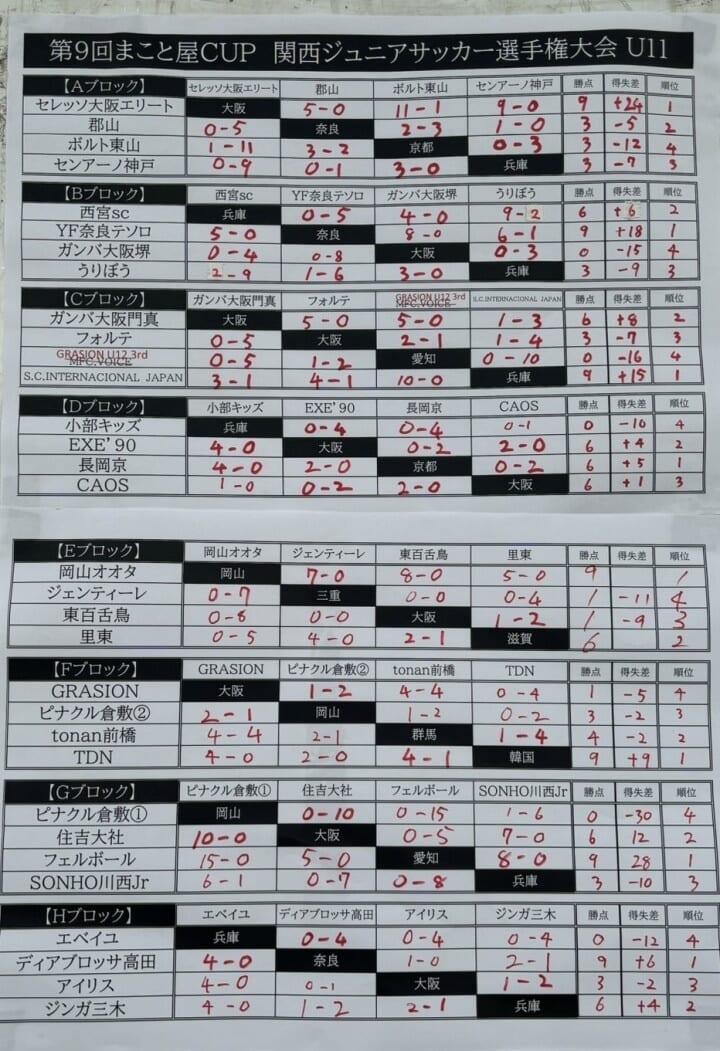 第9回まこと屋CUP 関西ジュニアサッカー選手権大会 U11
【Aブロック】 セレッソ大阪エリート 郡山 ボルト東山 センアーノ神戸 勝点 得失差 順位
セレッソ大阪エリート 大阪 5-0 11-1 9-0 9 +24 1
郡山 0-5 奈良 2-3 1-0 3 -5 2
ボルト東山 1-11 3-2 京都 0-3 3 -12 4
センアーノ神戸 0-9 0-1 3-0 兵庫 3 -7 3
【Bブロック】 西宮sc YF奈良テソロ ガンバ大阪堺 うりぼう 勝点 得失差 順位
西宮sc 兵庫 0-5 4-0 9-2 6 +6 2
YF奈良テソロ 5-0 奈良 8-0 6-1 9 +18 1
ガンバ大阪堺 0-4 0-8 大阪 0-3 0 -15 4
うりぼう 2-9 1-6 3-0 兵庫 3 -9 3
【Cブロック】 ガンバ大阪門真 フォルテ GRASION U12 3rd MFC.VOICE S.C.INTERNACIONAL JAPAN 勝点 得失差 順位
ガンバ大阪門真 大阪 5-0 5-0 1-3 6 +8 2
フォルテ 0-5 大阪 2-1 1-4 3 -7 3
GRASION U12 3rd MFC.VOICE 0-5 1-2 愛知 0-10 0 -16 4
S.C.INTERNACIONAL JAPAN 3-1 4-1 10-0 兵庫 9 +15 1
【Dブロック】 小部キッズ EXE'90 長岡京 CAOS 勝点 得失差 順位
小部キッズ 兵庫 0-4 0-4 0-1 0 -10 4
EXE'90 4-0 大阪 0-2 2-0 6 +4 2
長岡京 4-0 2-0 京都 0-2 6 +5 1
CAOS 1-0 0-2 2-0 大阪 6 +1 3
【Eブロック】 岡山オオタ ジェンティーレ 東百舌鳥 里東 勝点 得失差 順位
岡山オオタ 岡山 7-0 8-0 5-0 9 1
ジェンティーレ 0-7 三重 0-0 0-4 1 -11 4
東百舌鳥 0-8 0-0 大阪 1-2 1 -9 3
里東 0-5 4-0 2-1 滋賀 6 2
【Fブロック】 GRASION ピナクル倉敷② tonan前橋 TDN 勝点 得失差 順位
GRASION 大阪 1-2 4-4 0-4 1 -5 4
ピナクル倉敷② 2-1 岡山 1-2 0-2 3 -2 3
tonan前橋 4-4 2-1 群馬 1-4 4 -2 2
TDN 4-0 2-0 4-1 韓国 9 +9 1
【Gブロック】 ピナクル倉敷① 住吉大社 フェルボール SONHO川西Jr 勝点 得失差 順位
ピナクル倉敷① 岡山 0-10 0-15 1-6 0 -30 4
住吉大社 10-0 大阪 0-5 7-0 6 12 2
フェルボール 15-0 5-0 愛知 8-0 9 28 1
SONHO川西Jr 6-1 0-7 0-8 兵庫 3 -10 3
【Hブロック】 エベイユ ディアブロッサ高田 アイリス ジンガ三木 勝点 得失差 順位
エベイユ 兵庫 0-4 0-4 0-4 0 -12 4
ディアブロッサ高田 4-0 奈良 1-0 2-1 9 +6 1
アイリス 4-0 0-1 大阪 1-2 3 -2 3
ジンガ三木 4-0 1-2 2-1 兵庫 6 +4 2